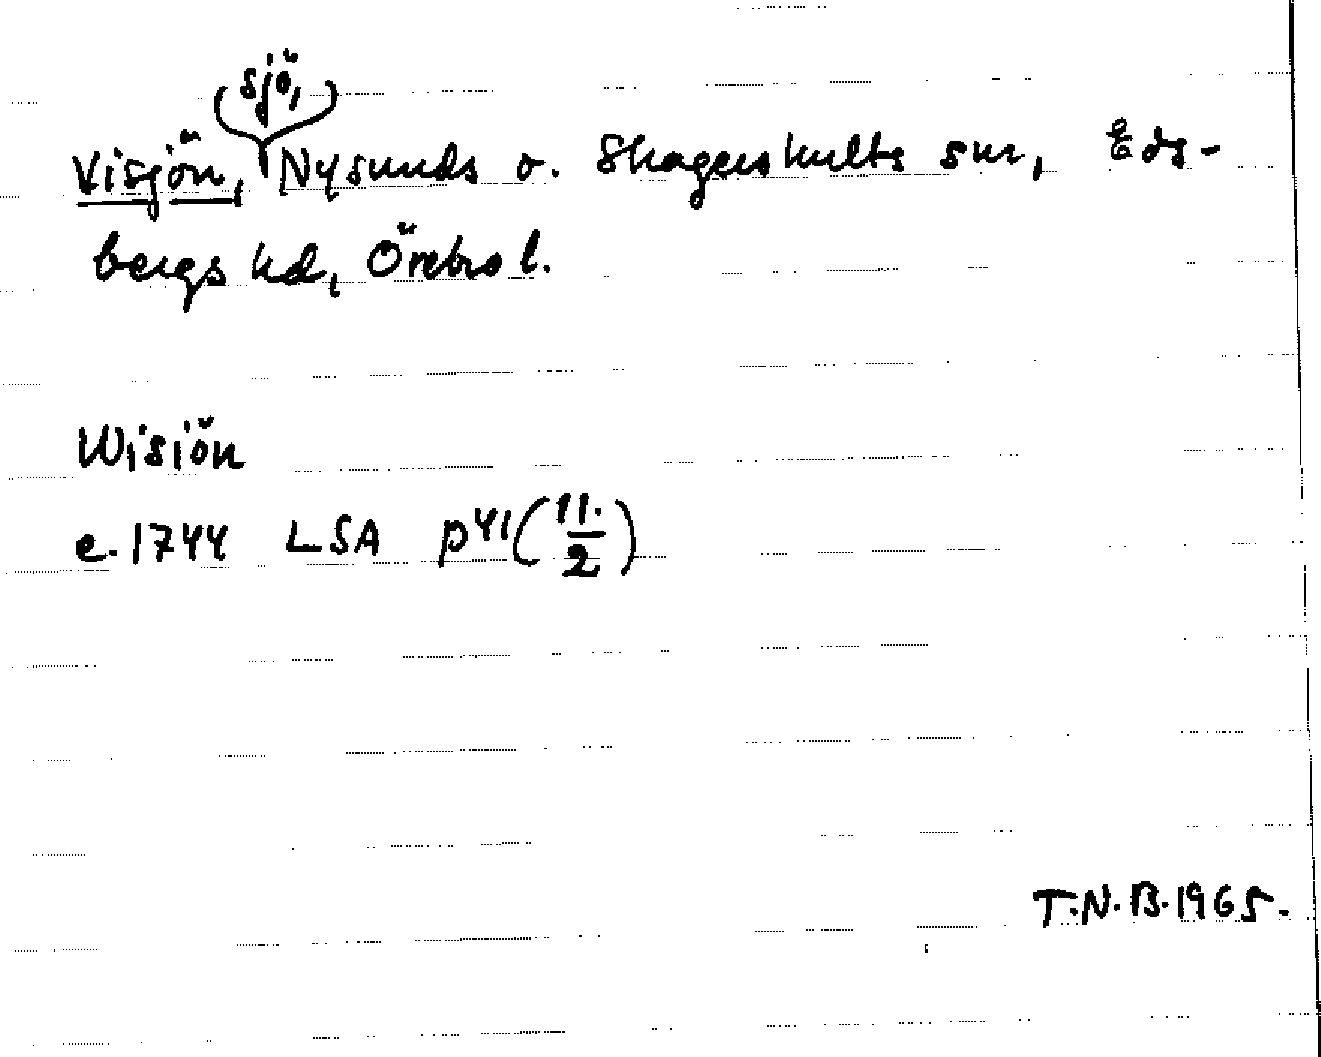 Visjön, sjö, Nysunds o. Skagershults snr, Eds-
bergs hd, Örebro l.
Wisiön
e. 1744 LSA p41 (11./2)
T.N.B. 1965.